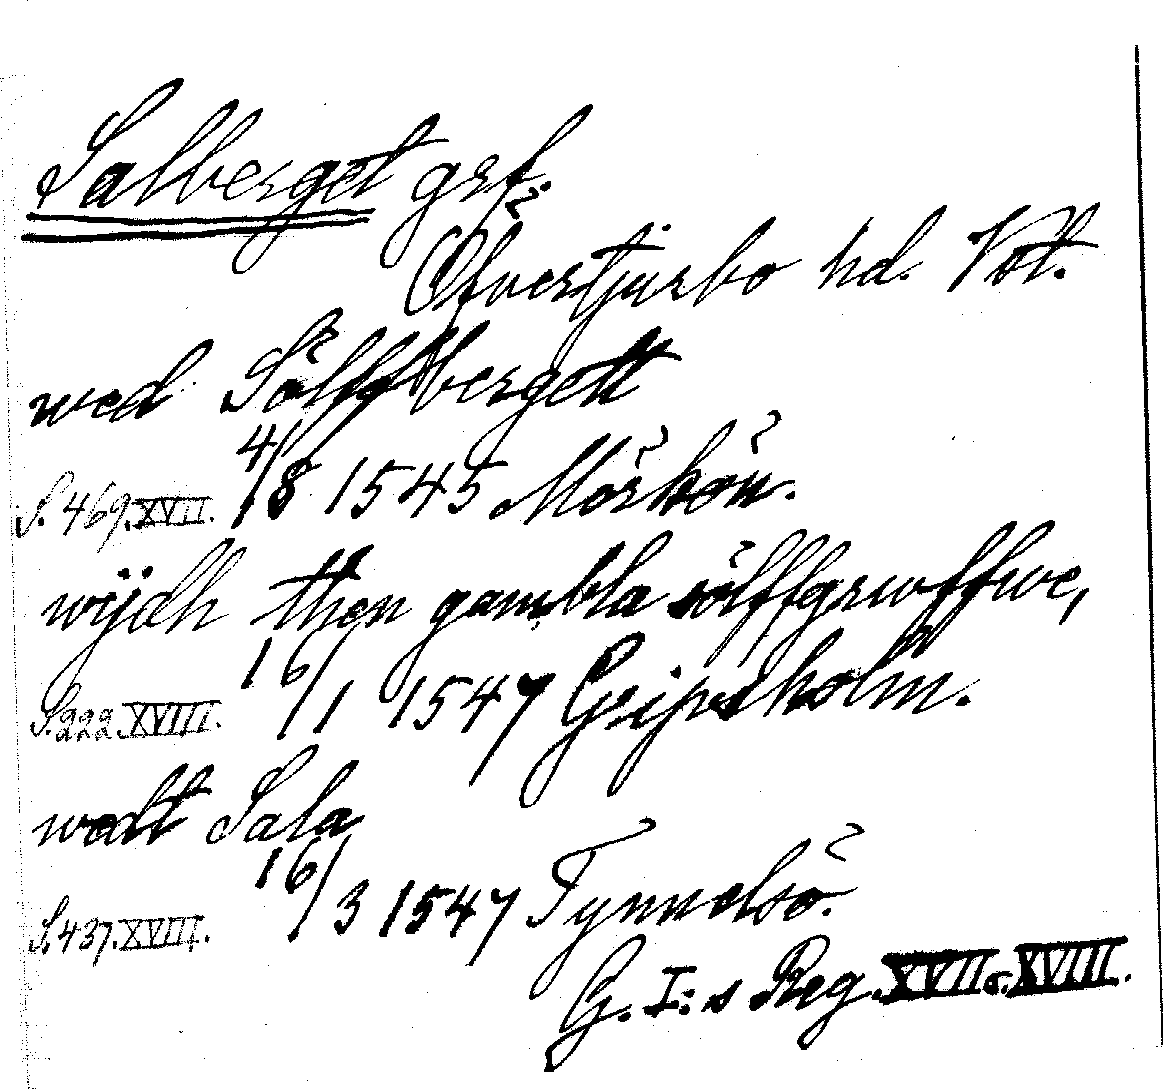 Salberget grf.
Öfvertjurbo hd. Vstm.
wed Sölffbergett
S. 469. XVII. 4/8 1545 Mörkön.
wijdh then gambla sölffgrwffwe,
S. 222. XVIII. 16/1 1547 Gripsholm.
wedt Sala
S. 437. XVIII. 16/3 1547 Tynnelsö.
G. I:s Reg. XVII o. XVIII.